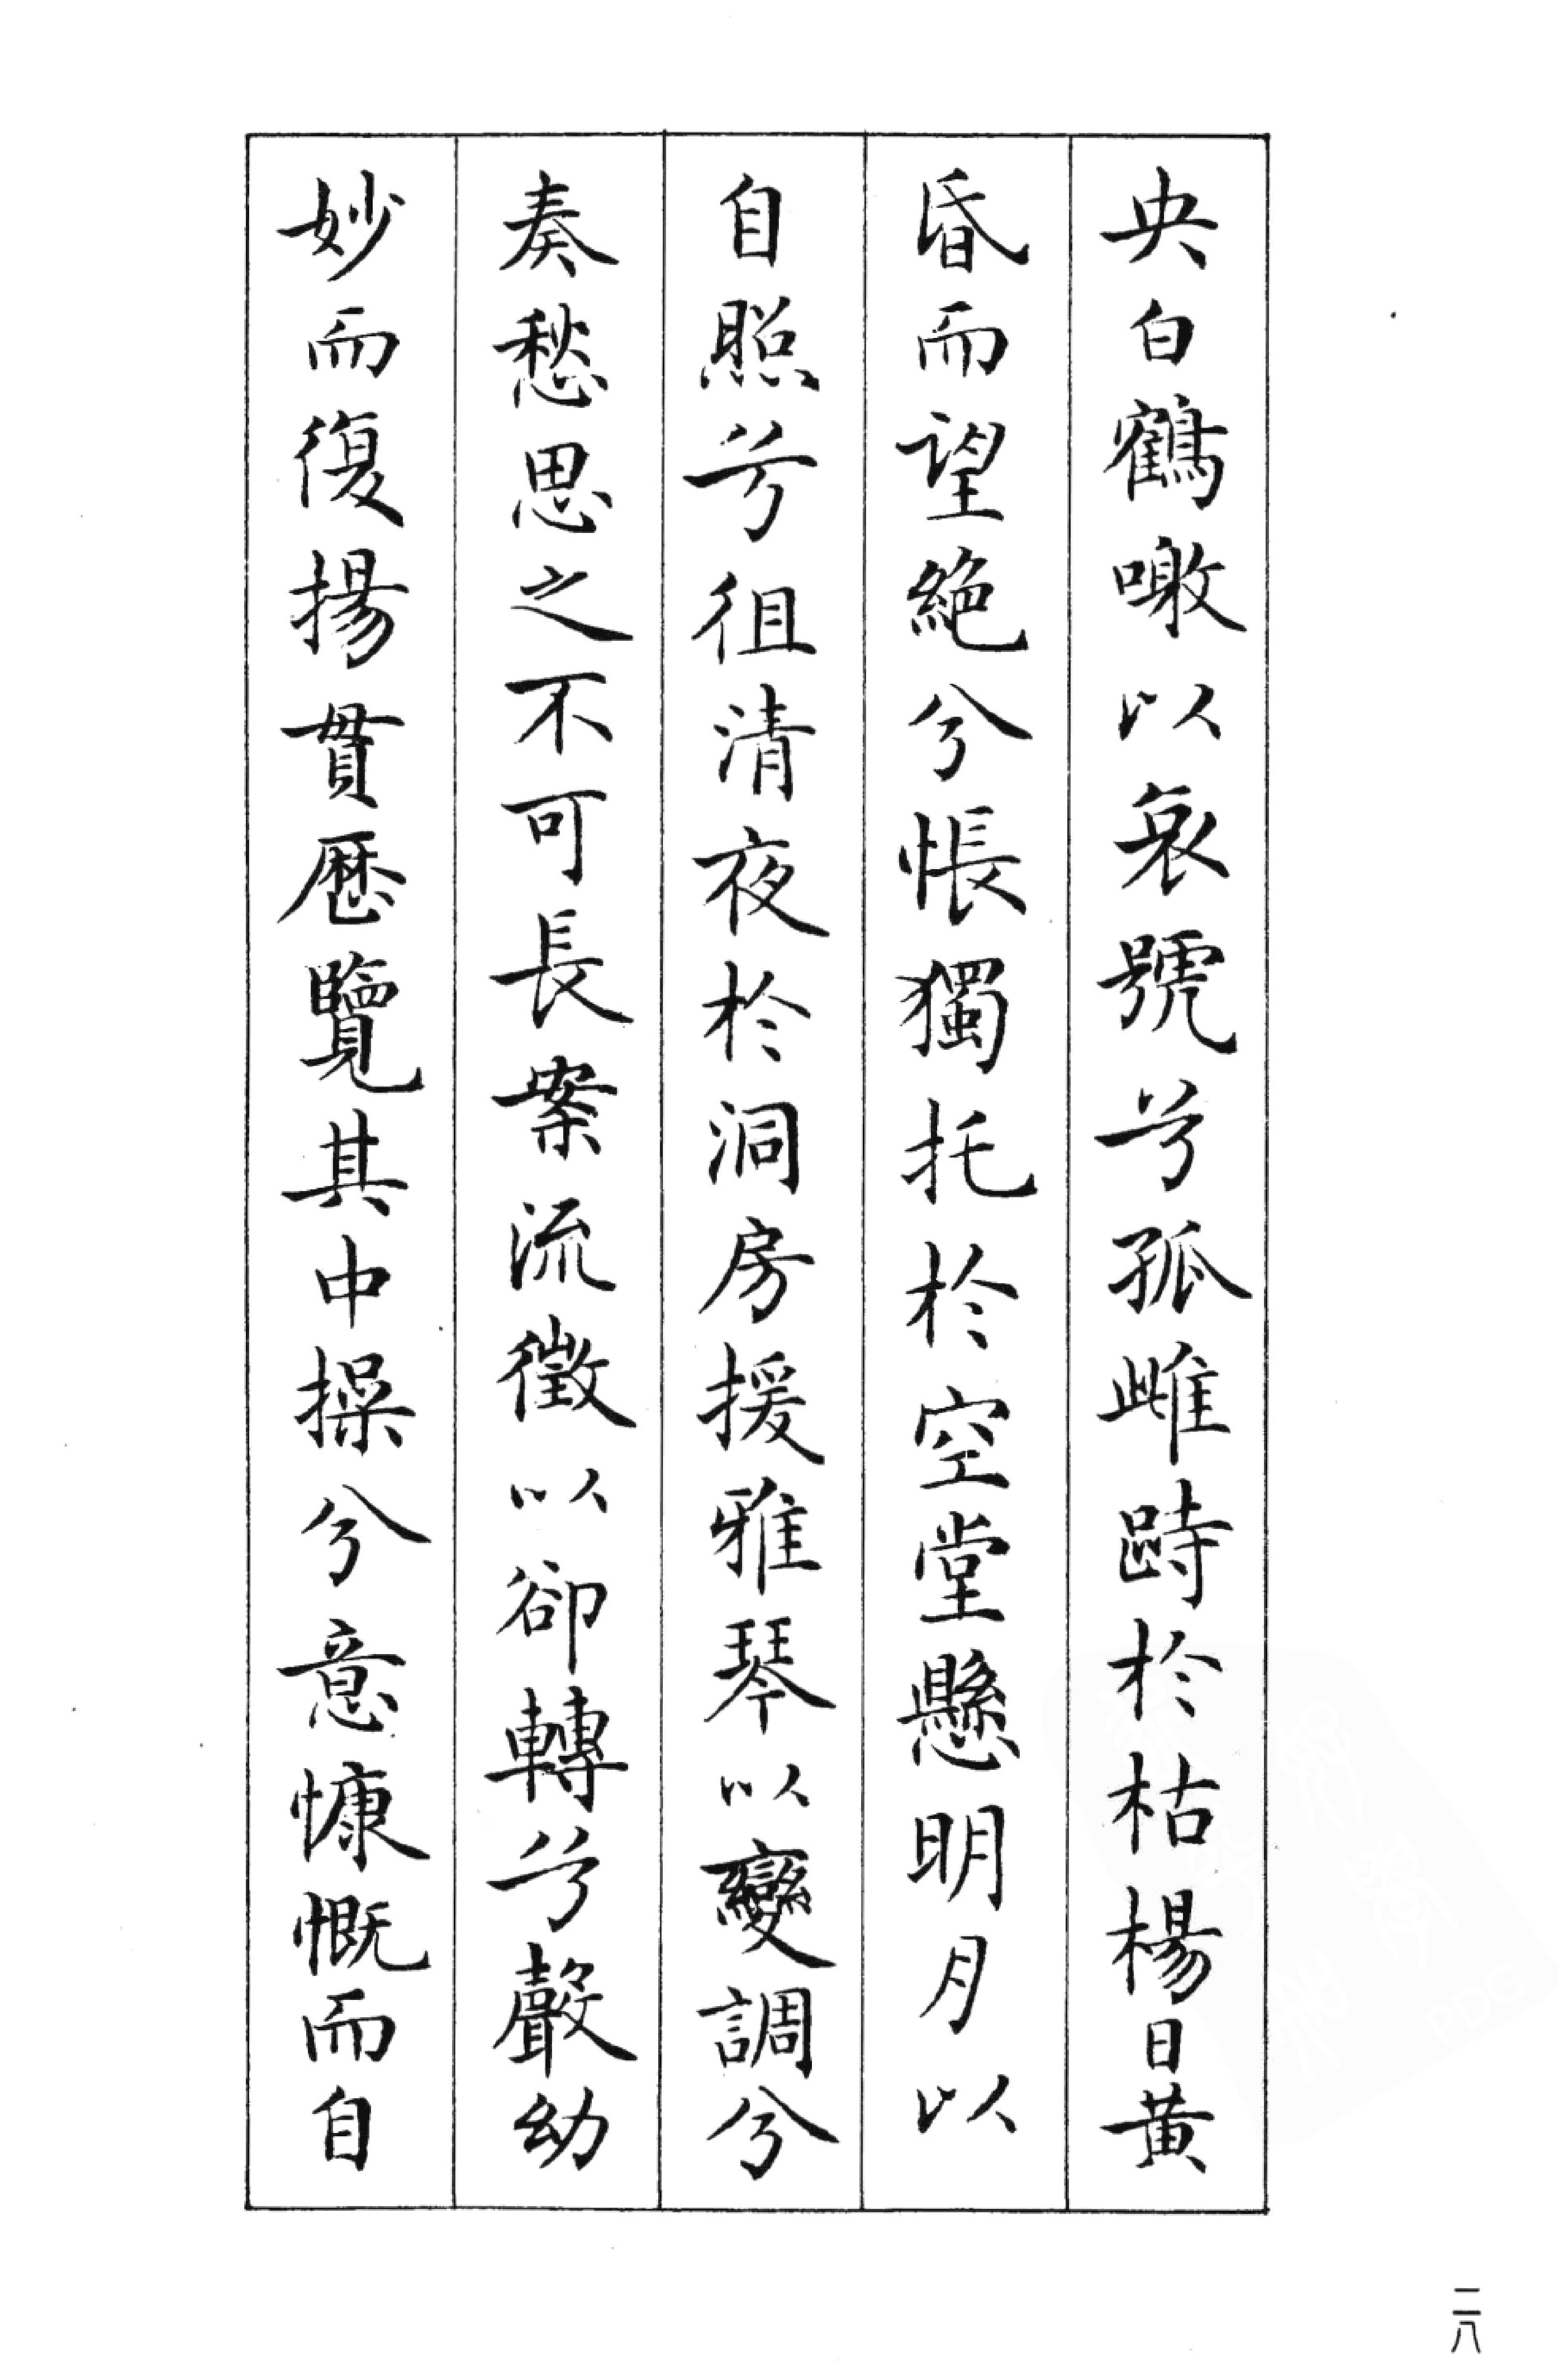 央白鶴噭以哀號兮孤雌跱於枯楊日黄
昏而望絶兮悵獨托於空堂懸明月以
自照兮徂清夜於洞房援雅琴以變調兮
奏愁思之不可長案流徵以卻轉兮聲幼
妙而復揚貫歷覽其中操兮意慷慨而自
二八